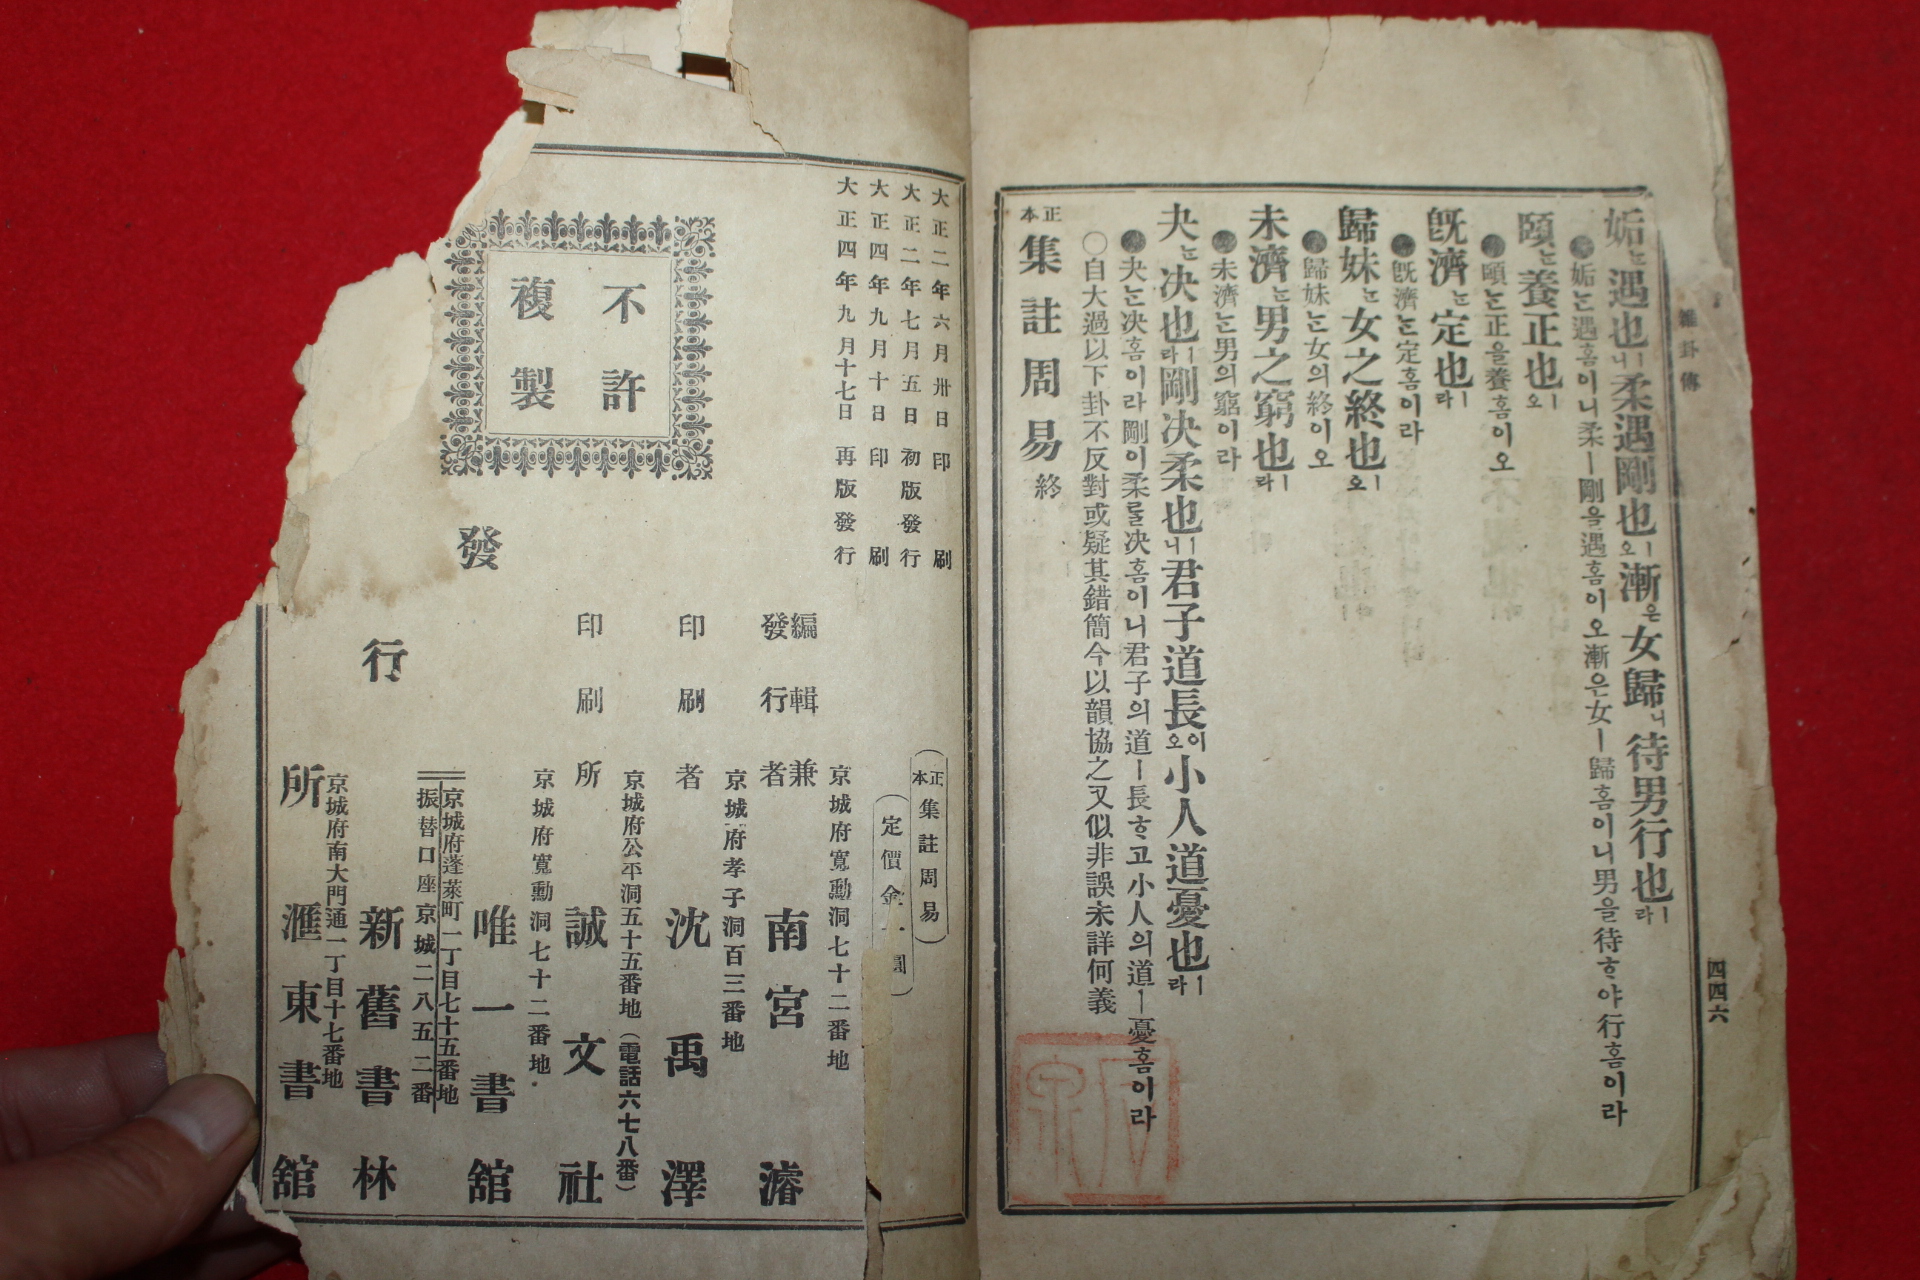 雜卦傳
四四六
姤는遇也ㅣ니柔遇剛也ㅣ오漸은女歸니待男行也ㅣ라
姤는遇홈이니柔ㅣ剛을遇홈이오漸은女ㅣ歸홈이니男을待ᄒᆞ야行홈이라
頤는養正也ㅣ오
頤는正을養홈이오
旣濟는定也ㅣ라
旣濟는定홈이라
歸妹는女之終也ㅣ오
歸妹는女의終이오
未濟는男之窮也ㅣ라
未濟는男의窮이라
夬는决也ㅣ라剛决柔也ㅣ니君子道長이오小人道憂也ㅣ라
夬는决홈이라剛이柔를决홈이니君子의道ㅣ長ᄒᆞ고小人의道ㅣ憂홈이라
○自大過以下卦不反對或疑其錯簡今以韻協之又似非誤未詳何義
正本集註周易終
大正二年六月卅日印刷
大正二年七月五日初版發行
大正四年九月十日印刷
大正四年九月十七日再版發行
不許
複製
正本集註周易
定價金
圓
京城府寬勳洞七十二番地
編輯兼
發行者 南宮濬
京城府孝子洞百三番地
印刷者 沈禹澤
京城府公平洞五十五番地(電話六七八番)
印刷所 誠文社
京城府寬勳洞七十二番地
發行所
唯一書舘
京城府蓬萊町一丁目七十五番地
振替口座京城二八五二番
新舊書林
京城府南大門通一丁目十七番地
滙東書舘